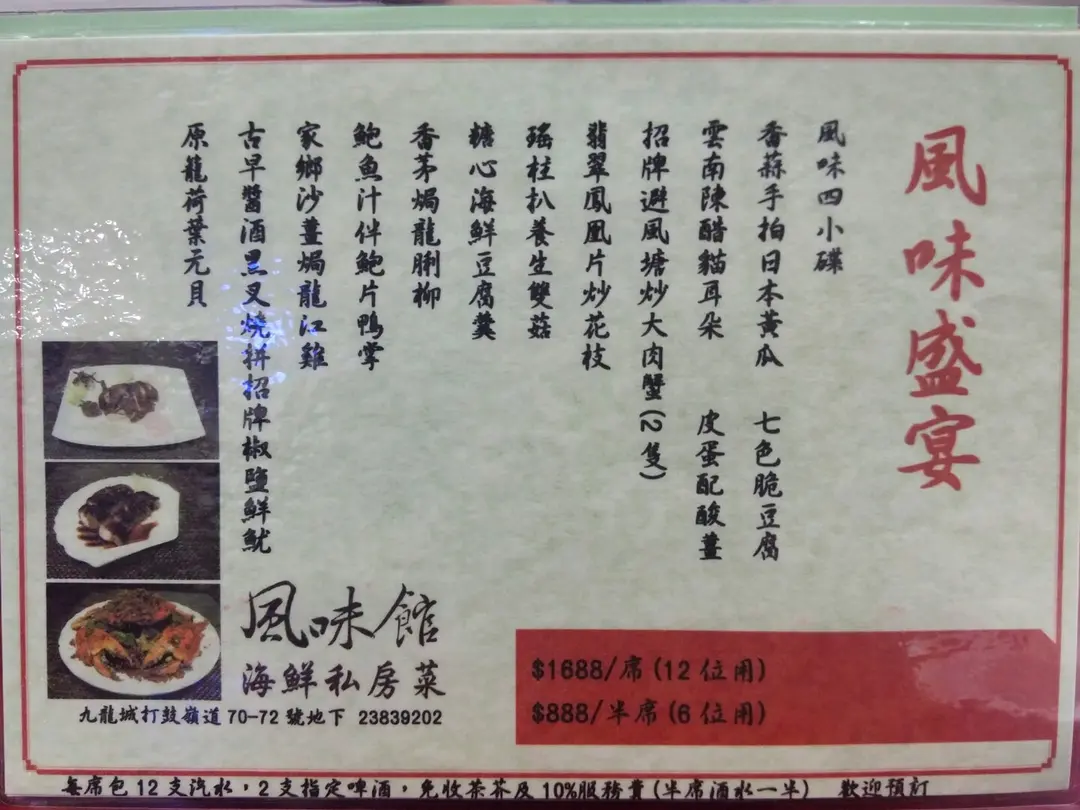 風味盛宴
風味四小碟
香蒜手拍日本黃瓜 七色脆豆腐
雲南陳醋貓耳朵 皮蛋配酸薑
招牌避風塘炒大肉蟹(2隻)
翡翠鳳凰片炒花枝
瑤柱扒養生雙菇
糖心海鮮豆腐羹
香茅焗龍脷柳
鮑魚汁伴鮑片鴨掌
家鄉沙薑焗龍江雞
古早醬酒黑叉燒拼招牌椒鹽鮮魷
原籠荷葉元貝
風味館
海鮮私房菜
九龍城打鼓嶺道70-72號地下 23839202
$1688/席(12位用)
$888/半席(6位用)
每席包12支汽水，2支指定啤酒，免收茶芥及10%服務費(半席酒水一半) 歡迎預訂